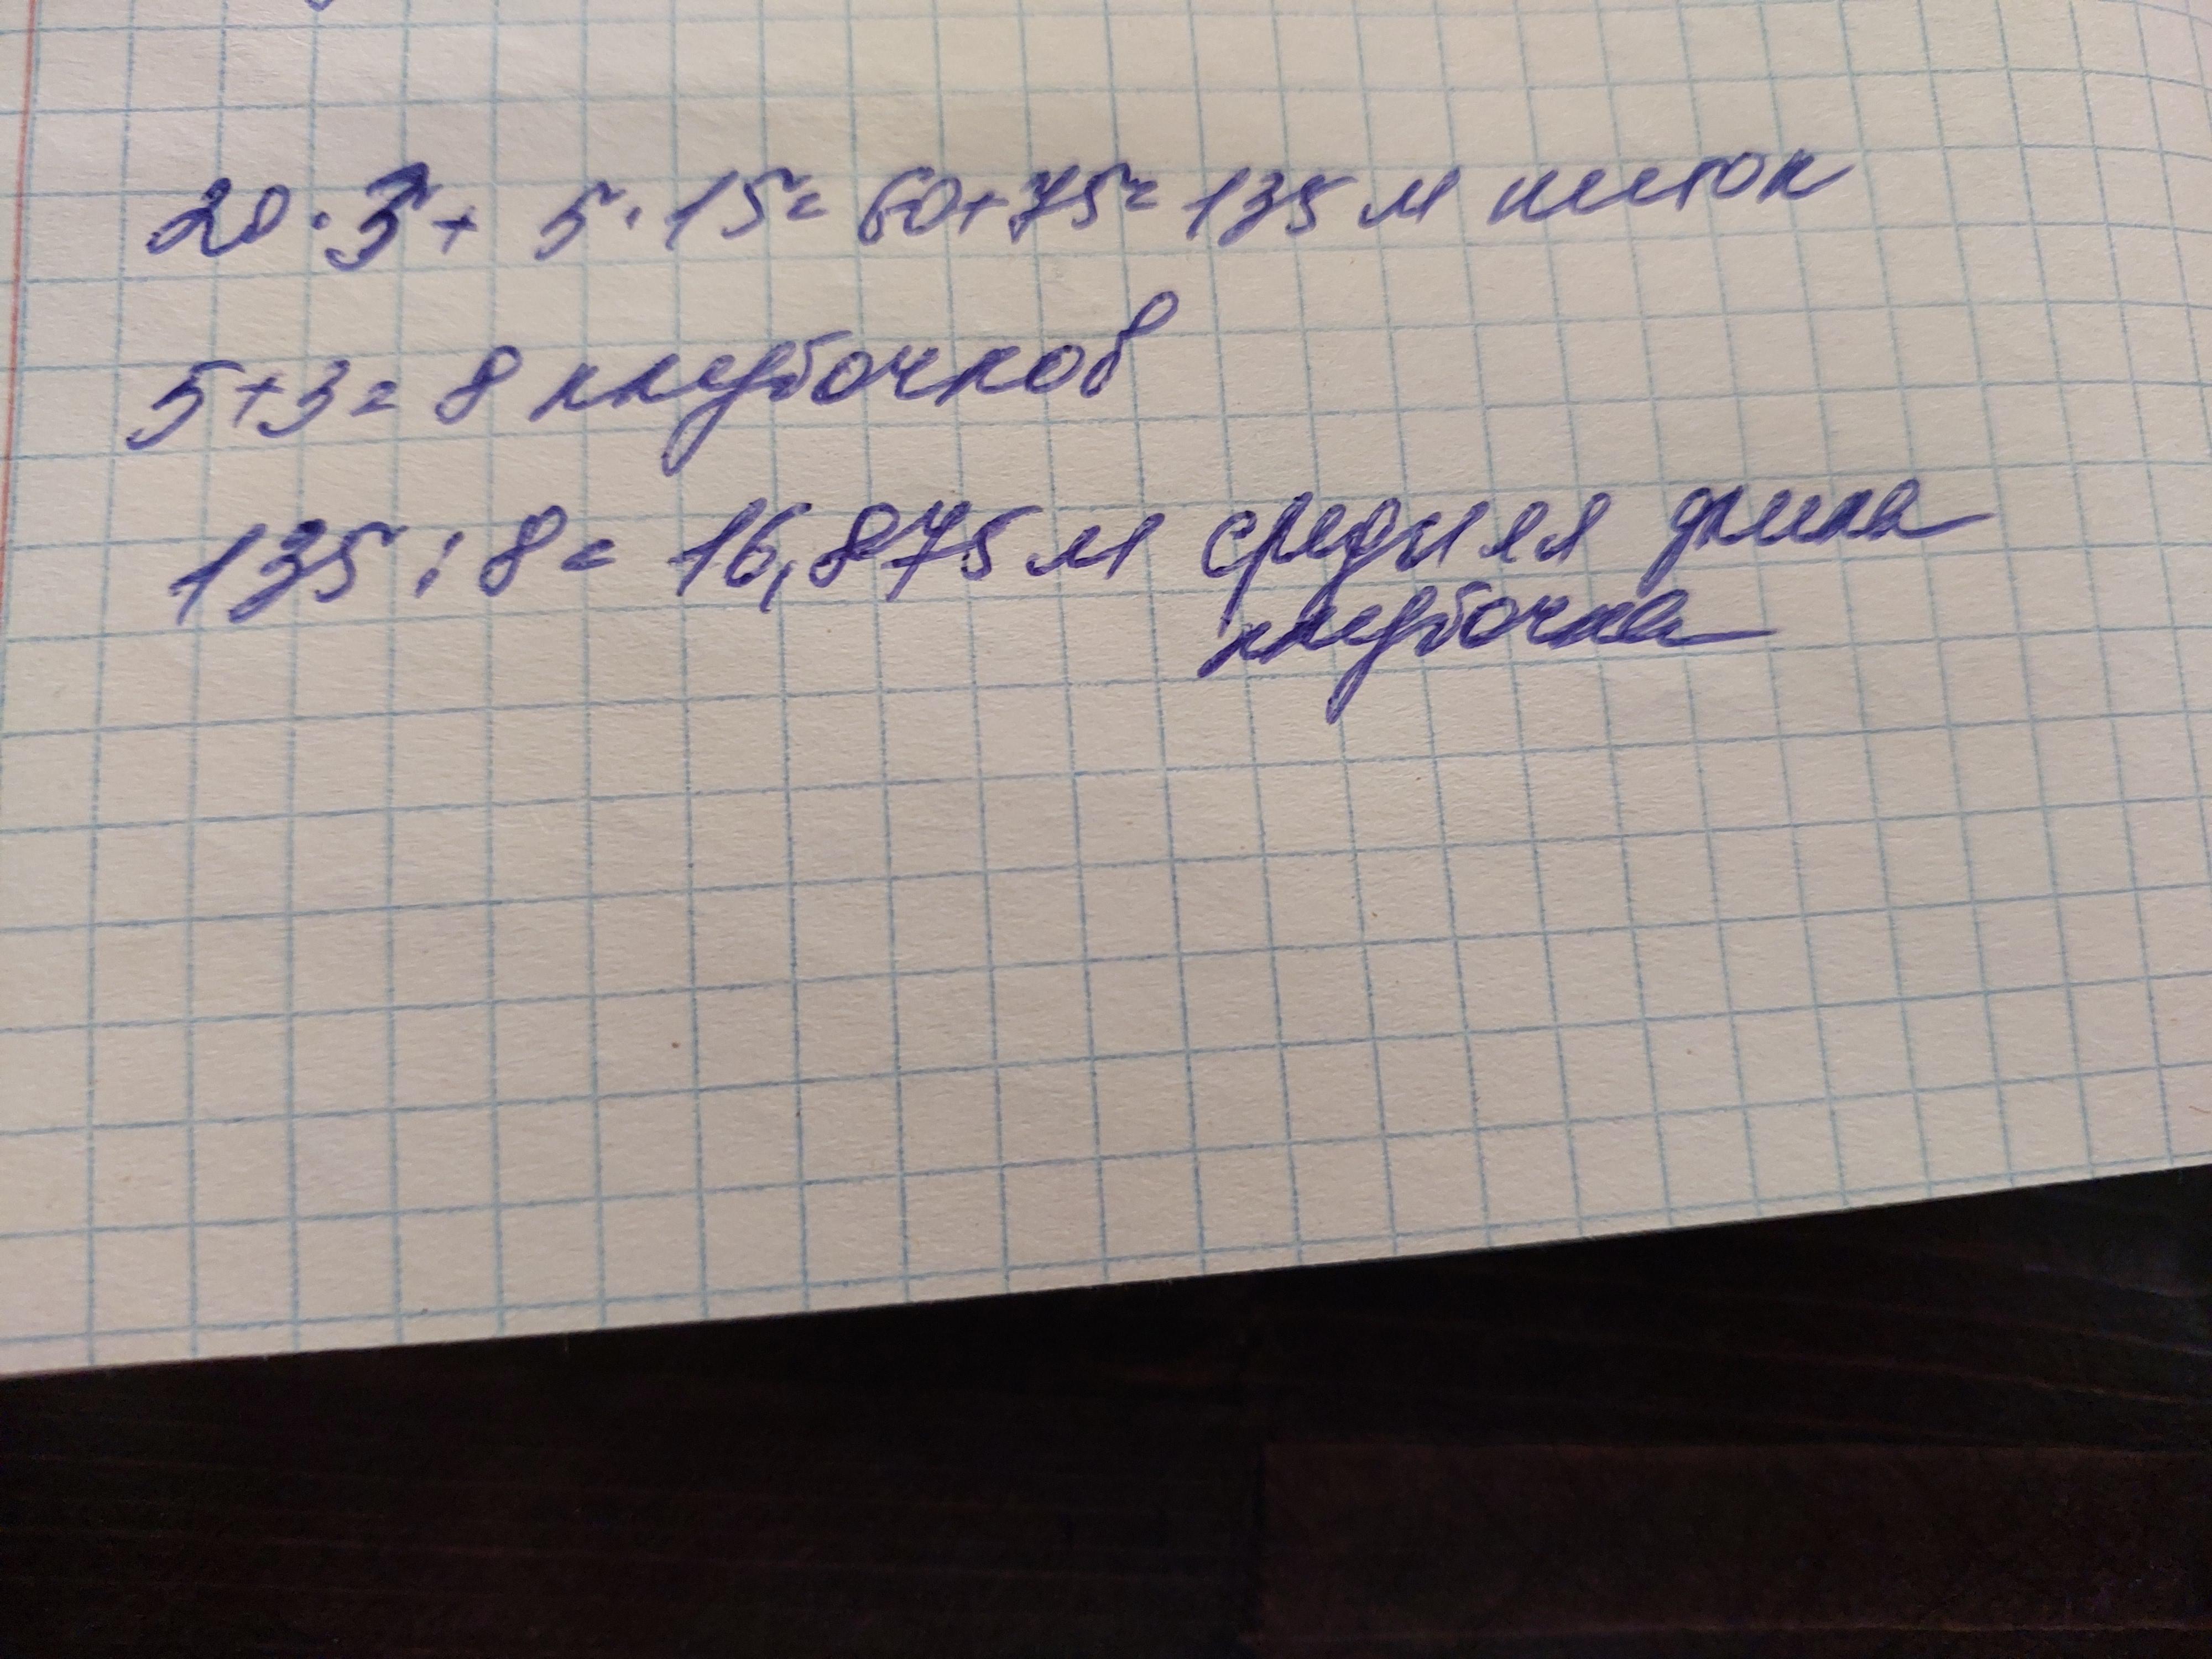 20·3+ 5·15= 60+75= 135 м ниток
5+3= 8 клубочков
135 : 8= 16,875 м средняя длина
клубочка